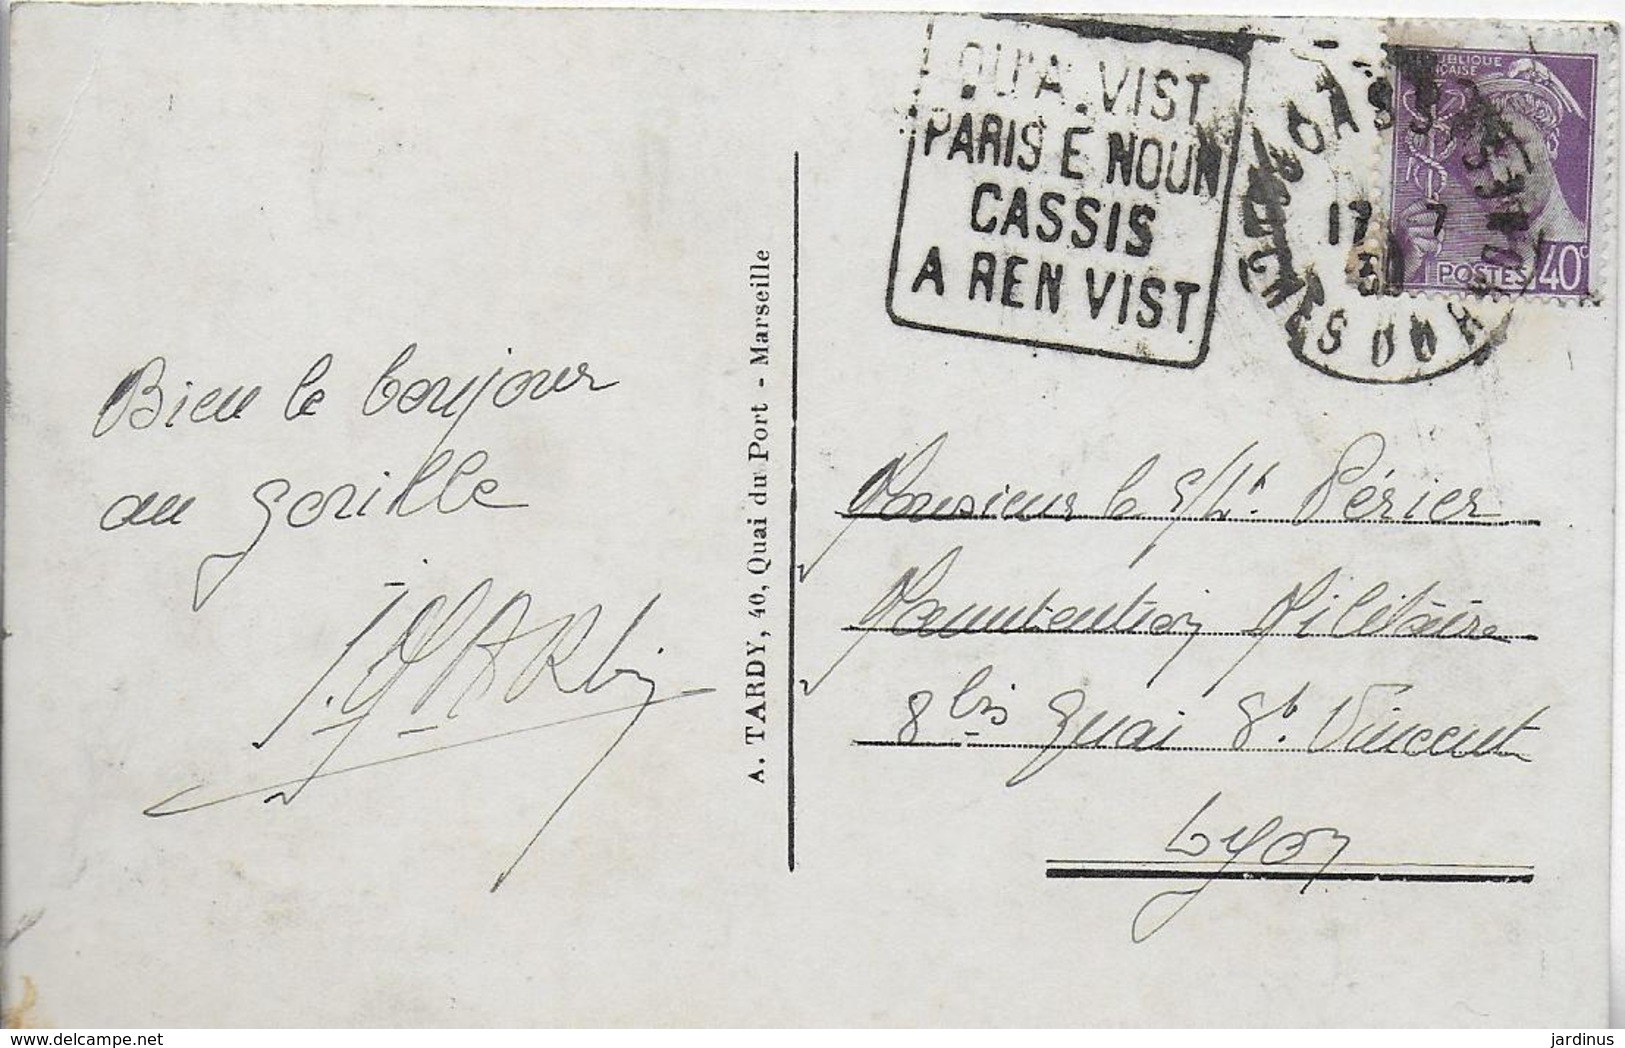 QU'A VIST
PARIS E NOUN
CASSIS
A REN VIST
CASSIS
BOUCHES DU RHONE
17 7
REPUBLIQUE
FRANÇAISE
POSTES 40c
Bien le bonjour
au gorille
A. TARDY, 40, Quai du Port - Marseille
Monsieur le S/Lt Périer
Manutention Militaire
8 bis Quai St. Vincent
Lyon
jardinus
delcampe.net